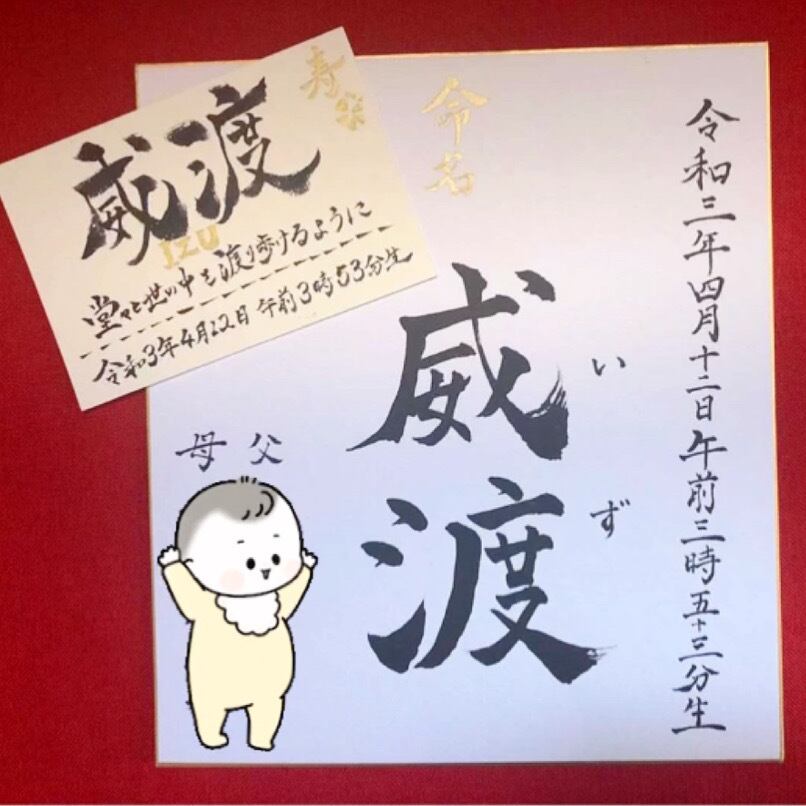 寿
威渡
IZU
堂々と世の中を渡り歩けるように
令和3年4月12日 午前3時53分生
令和三年四月十二日午前三時五十三分生
命名
威渡
いず
父
母